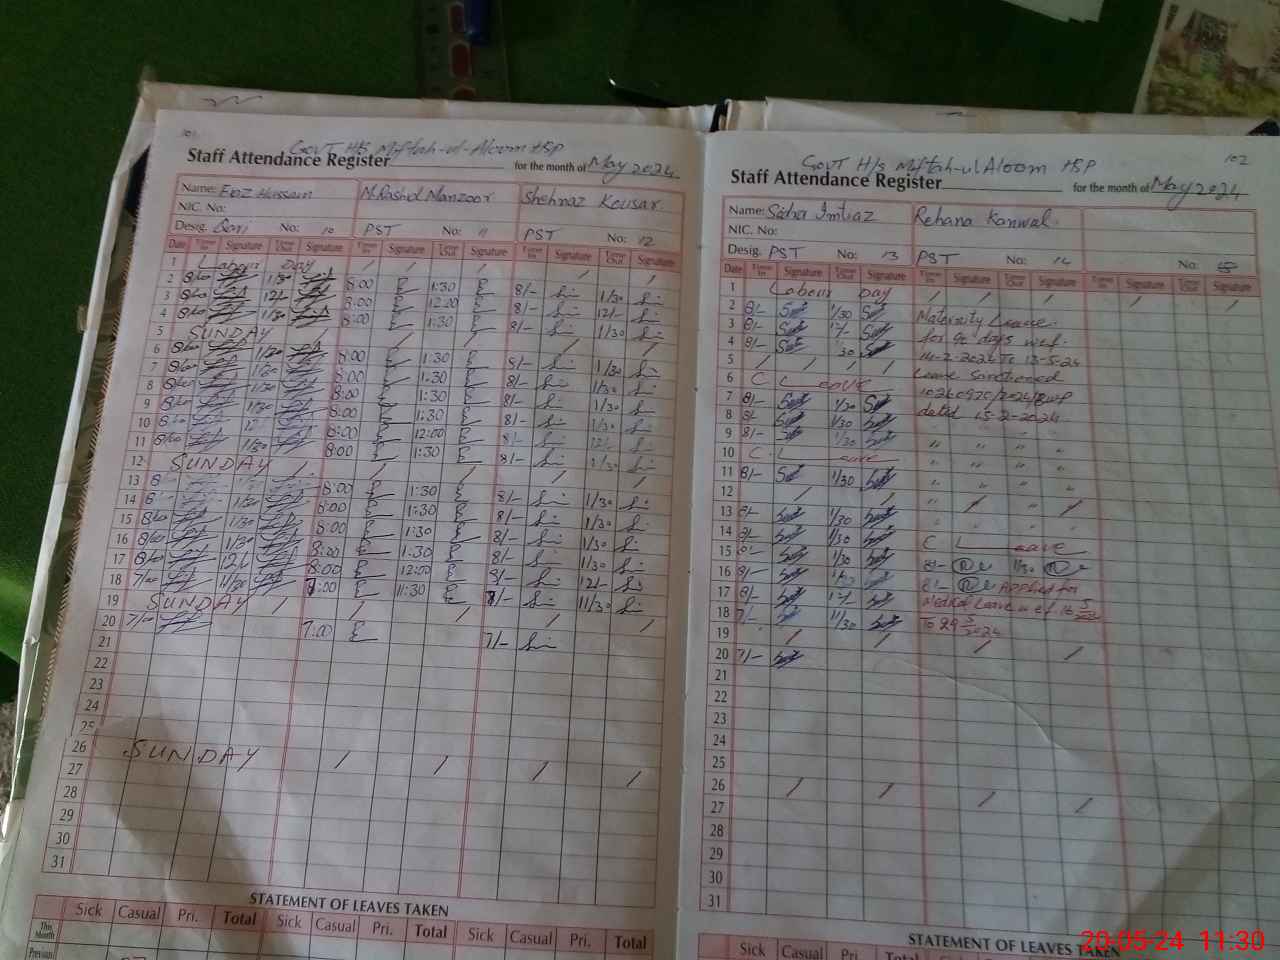 101
GovT H/S Miftah-ul-Aloom HSP
Staff Attendance Register for the month of May 2024
Name: Ejaz Hussain M.Rashid Manzoor Shehnaz Kousar
NIC. No:
Desig. Qari No: 10 PST No: 11 PST No: 12
Date Time In Signature Time Out Signature Time In Signature Time Out Signature Time In Signature Time Out Signature
1 Labour Day
2 8/00 1/30 8:00 1:30 8/- 1/30
3 8/00 12/- 8:00 12:00 8/- 12/-
4 8/00 1/30 8:00 1:30 8/- 1/30
5 SUNDAY
6 8/00 1/30 8:00 1:30 8/- 1/30
7 8/00 1/30 8:00 1:30 8/- 1/30
8 8/00 1/30 8:00 1:30 8/- 1/30
9 8/00 1/30 8:00 1:30 8/- 1/30
10 8/00 12 8:00 12:00 8/- 12/-
11 8/00 1/30 8:00 1:30 8/- 1/30
12 SUNDAY
13 8 8:00 1:30 8/- 1/30
14 8 1/30 8:00 1:30 8/- 1/30
15 8/00 1/30 8:00 1:30 8/- 1/30
16 8/00 1/30 8:00 1:30 8/- 1/30
17 8/00 12/- 8:00 12:00 8/- 12/-
18 7/00 11/30 7:00 11:30 8/- 11/30
19 SUNDAY
20 7/00 7:00 7/-
21
22
23
24
25
26 SUNDAY
27
28
29
30
31
STATEMENT OF LEAVES TAKEN
Sick Casual Pri. Total Sick Casual Pri. Total Sick Casual Pri. Total
This Month
Previous
102
GovT H/s Miftah-ul Aloom HSP
Staff Attendance Register for the month of May 2024
Name: Sadia Imtiaz Rehana Kanwal
NIC. No:
Desig. PST No: 13 PST No: 14 No:
Date Time In Signature Time Out Signature Time In Signature Time Out Signature Time In Signature Time Out Signature
1 Labour Day
2 8/- 1/30 Maternity Leave
3 8/- 12/- for 90 days w.e.f.
4 8/- 1/30 14-2-2024 To 13-5-24
5 Leave Sanctioned
6 C Leave
7 8/- 1/30 dated 15-2-2024
8 8/- 1/30
9 8/- 1/30
10 C Leave
11 8/- 1/30
12
13 8/- 1/30
14 8/- 1/30 C Leave
15 8/- 1/30 8/- 1/30
16 8/- 1/30 8/- Applied for
17 8/- 12/- Medical Leave w.e.f 16 5/2024
18 7/- 11/30 To 29 5/2024
19
20 7/-
21
22
23
24
25
26
27
28
29
30
31
STATEMENT OF LEAVES TAKEN
Sick Casual Pri. Total Sick Casual
20-05-24 11:30